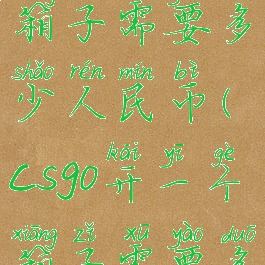 箱子需要多
shǎo rén mín bì
少人民币(
kāi yī gè
CSgo开一个
xiāng zǐ xū yào duō
箱子需要多